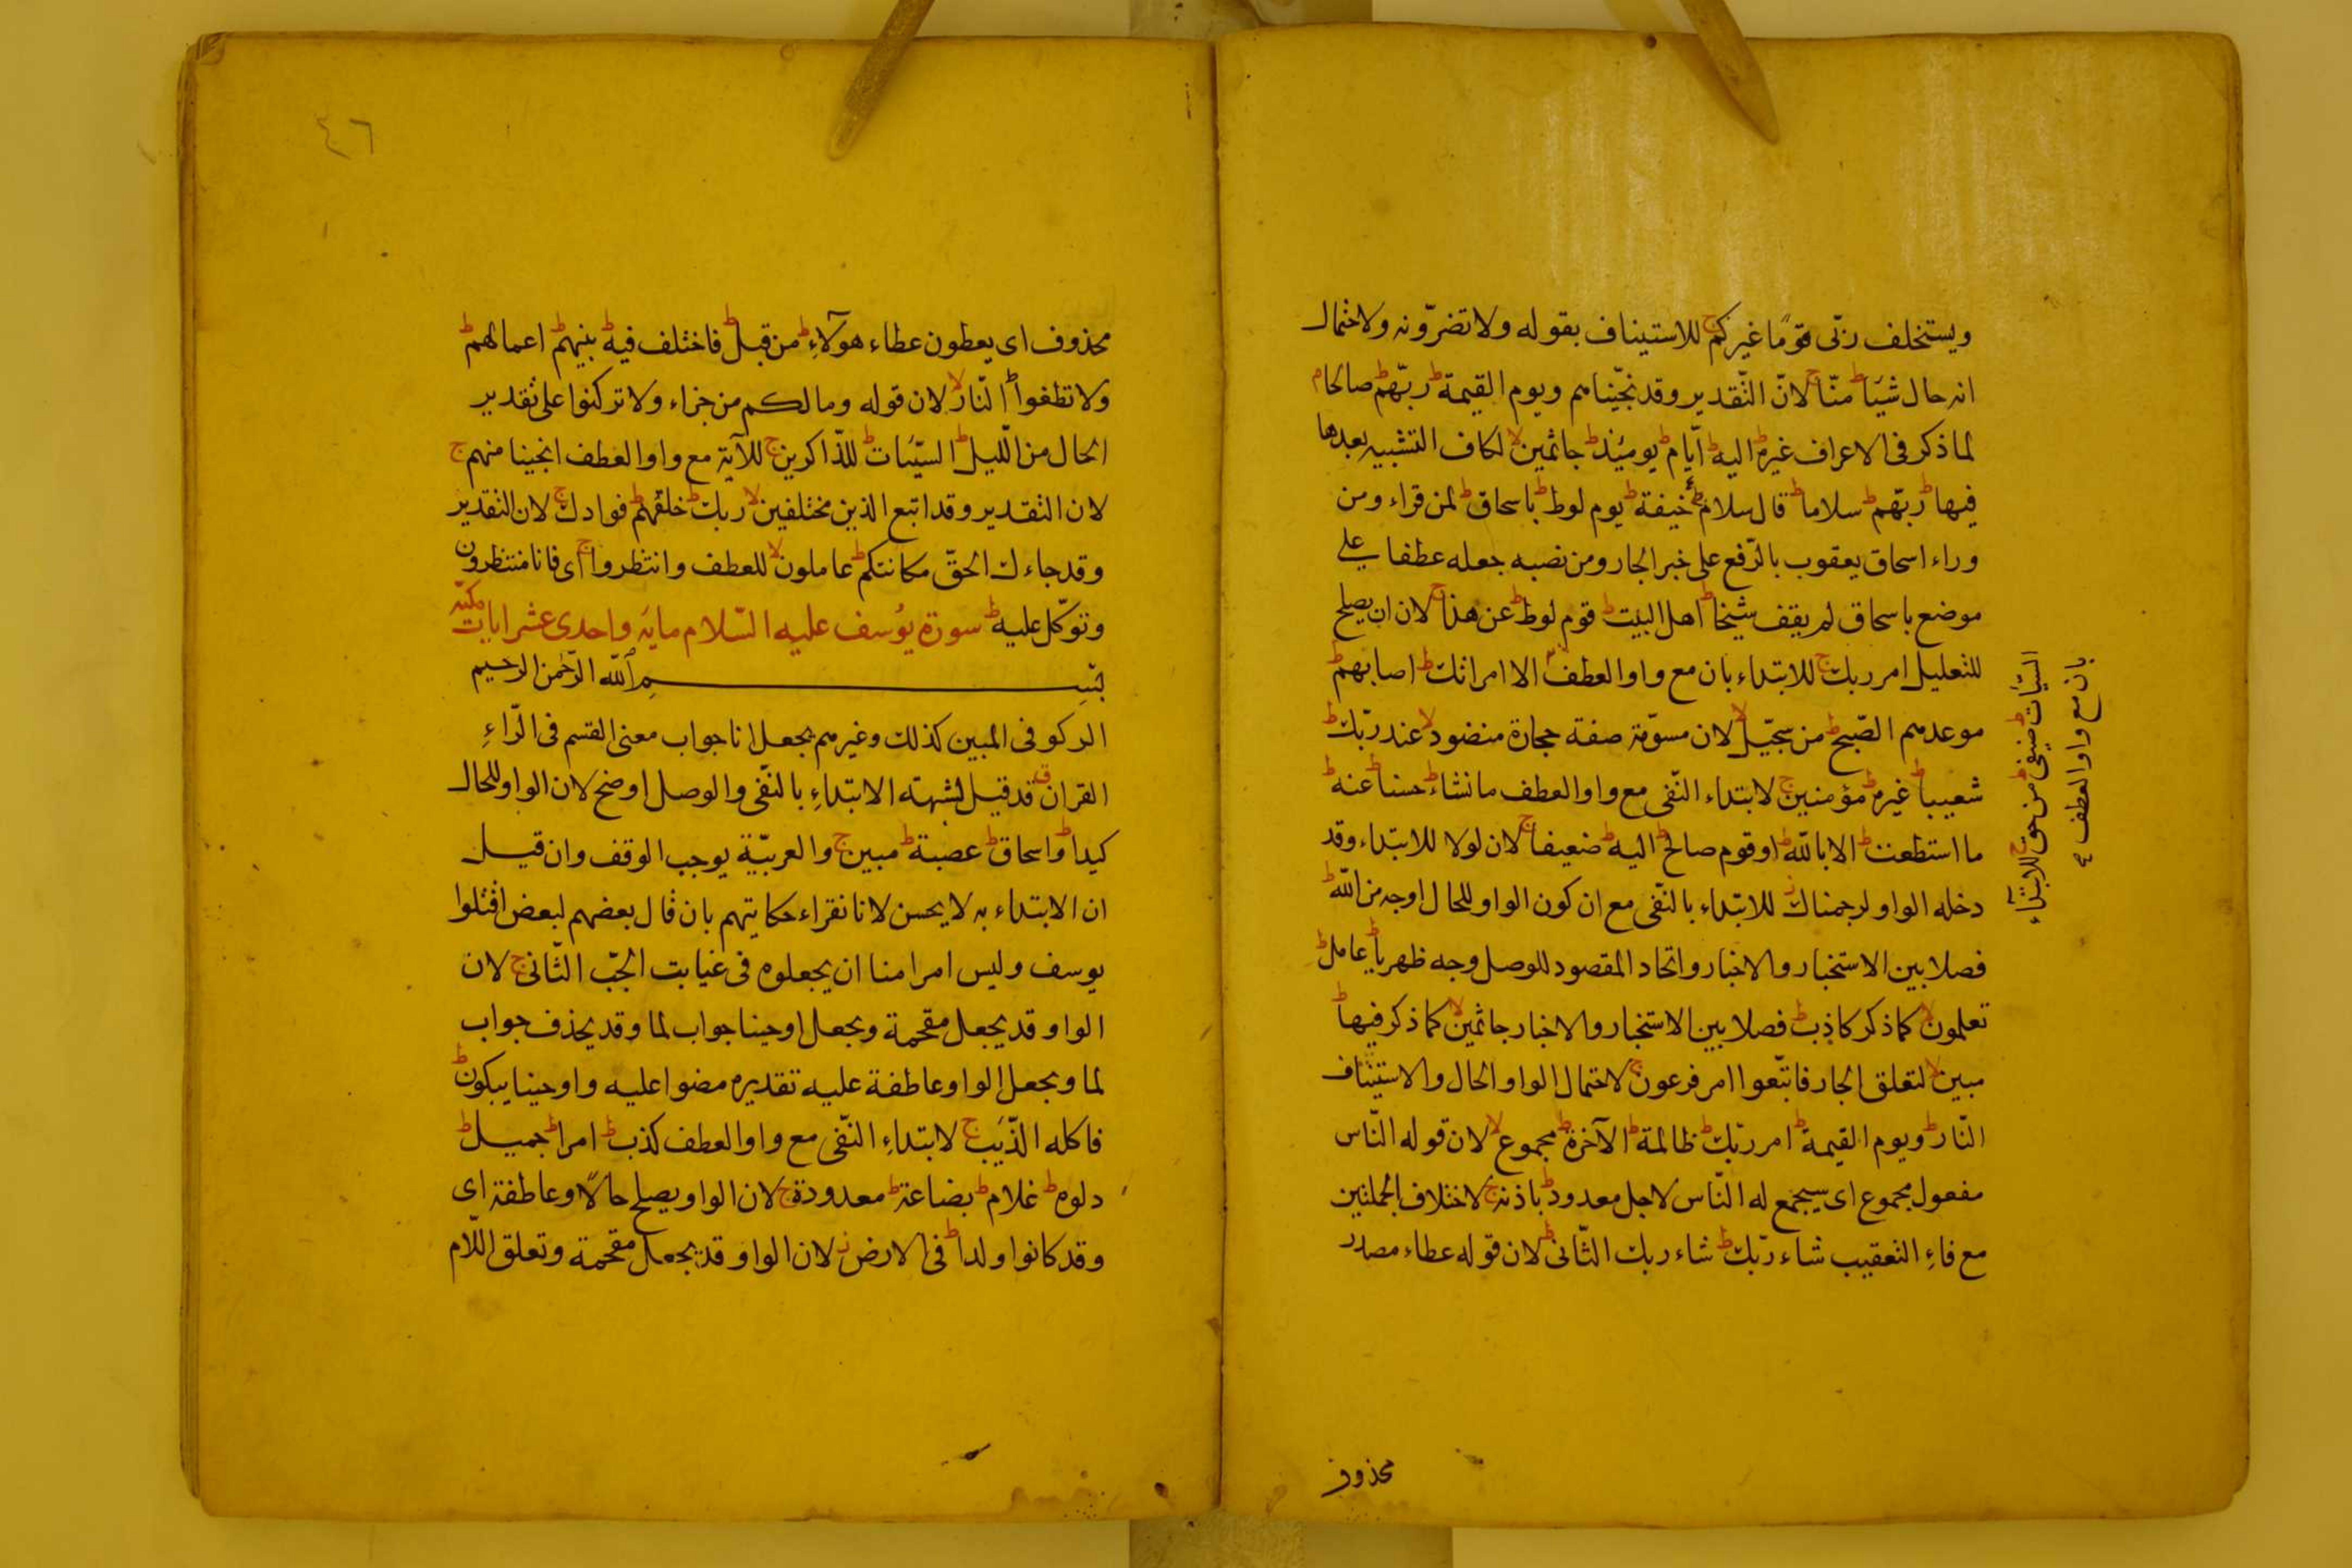 ويستخلف ربّى قومًا غيركم ج للاستيناف بقوله ولا تضرّونه ولاحتمال
انه حال شيئا ط منّا ج لانّ التّقدير وقد نجّيناهم ويوم القيمة ط ربّهم ط صالحا م
لما ذكر فى الاعراف غيره ط اليه ط ايّام ط يومئذ ط جاثمين لا لكاف التشبيه بعدها
فيها ط ربّهم ط سلاما ط قال سلام ط خيفة ط يوم لوط ط باسحاق ط لمن قراء ومن
وراء اسحاق يعقوب بالرّفع على خبر الجار ومن نصبه جعله عطفا على
موضع باسحاق لم يقف شيخا ط اهل البيت ط قوم لوط ط عن هذا ج لان ان يصلح
للتعليل امر ربك ج للابتداء بان مع واو العطف الا امراتك ط اصابهم ط
موعدهم الصّبح ط من سجّيل لا لان مسوّمة صفة حجارة منضود لا عند ربّك ط
شعيبا ط غيره ط مؤمنين ج لابتداء النّفى مع واو العطف ما نشاء ط حسنا ط عنه ط
ما استطعت ط الا بالله ط او قوم صالح ط اليه ط ضعيفا ج لان لولا للابتداء وقد
دخله الواو لرجمناك ز للابتداء بالنّفى مع ان كون الواو للحال اوجه من الله ط
فصلا بين الاستخبار والاخبار واتحاد المقصود للوصل وجه ظهريا ط عامل ط
تعلمون لا كما ذكر كاذب ط فصلا بين الاستخبار والاخبار جاثمين لا كما ذكر فيها ط
مبين لا لتعلق الجار فاتّبعوا امر فرعون ج لاحتمال الواو الحال والاستيناف
النّار ط ويوم القيمة ط امر ربّك ط ظالمة ط الآخرة ط مجموع لا لان قوله النّاس
مفعول مجموع اى سيجمع له النّاس لاجل معدود ط باذنه ج لاختلاف الجملتين
مع فاءِ التعقيب شاء ربّك ط شاء ربك الثّانى ط لان قوله عطاء مصدر
السّيّئات ط ضيفى ط من حق ج للابتداء
بان مع واو العطف
محذوف
٤٦
محذوف اى يعطون عطاء هولآءِ ط من قبل ط فاختلف فيه ط بينهم ط اعمالهم ط
ولا تطغوا ط النّار لا لان قوله وما لكم من جزاء ولا تركنوا على تقدير
الحال من اللّيل ط السيّئات ط للذّاكرين ج للآية مع واو العطف انجينا منهم ج
لان التقدير وقد اتبع الذين مختلفين لا ربك ط خلقهم ط فوادك ج لان التقدير
وقد جاءك الحقّ مكانتكم ط عاملون لا للعطف وانتظروا ج اى فانا منتظرون
وتوكّل عليه ط سورة يُوسف عليه السّلام مايَه واحدى عشر ايات مكيّه
بسم الله الرّحمن الرحيم
الر كوفى المبين كذلك وغيرهم يجعل انا جواب معنى القسم فى الرّاءِ
القران ق قد قيل لشبهة الابتداءِ بالنّفى والوصل اوضح لان الواو للحال
كيدا ط واسحاق ط عصبة ط مبين ج والعربيّة يوجب الوقف وان قيل
ان الابتداء به لا يحسن لانا نقراء حكايتهم بان قال بعضهم لبعض اقتلوا
يوسف وليس امرا منا ان يجعلوه فى غيابت الجبّ الثّانى ج لان
الواو قد يجعل مقحمة ويجعل اوحينا جواب لما وقد يحذف جواب
لما ويجعل الواو عاطفة عليه تقديره مضوا عليه واوحينا يبكون ط
فاكله الذّيب ج لابتداءِ النّفى مع واو العطف كذب ط امرا ط جميل ط
دلوه ط غلام ط بضاعة ط معدودة ج لان الواو يصلح حالًا وعاطفة اى
وقد كانوا ولدا ط فى الارض ز لان الواو قد يجعل مقحمة وتعلق اللّام